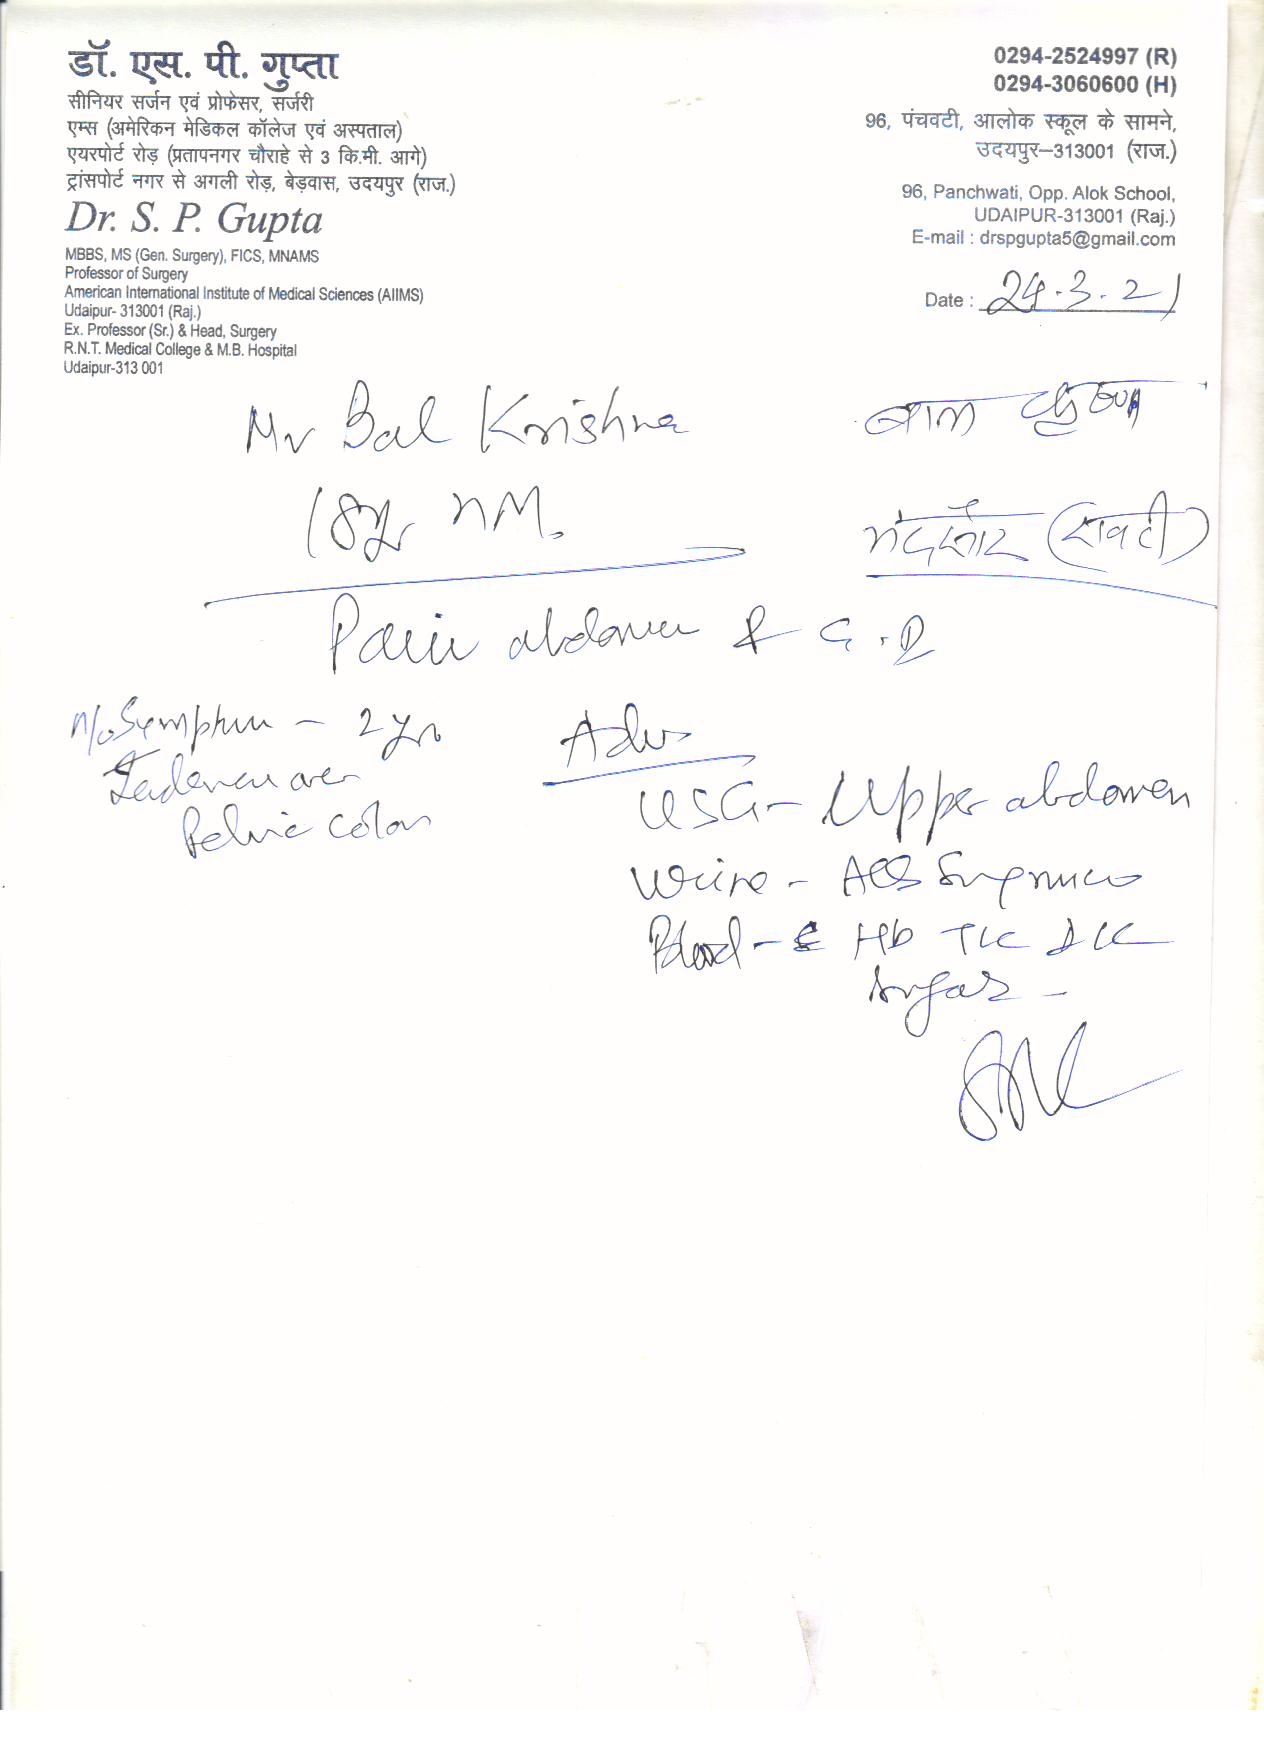 डॉ. एस. पी. गुप्ता
सीनियर सर्जन एवं प्रोफेसर, सर्जरी
एम्स (अमेरिकन मेडिकल कॉलेज एवं अस्पताल)
एयरपोर्ट रोड़ (प्रतापनगर चौराहे से 3 कि.मी. आगे)
ट्रांसपोर्ट नगर से अगली रोड़, बेड़वास, उदयपुर (राज.)
Dr. S. P. Gupta
MBBS, MS (Gen. Surgery), FICS, MNAMS
Professor of Surgery
American International Institute of Medical Sciences (AIIMS)
Udaipur- 313001 (Raj.)
Ex. Professor (Sr.) & Head, Surgery
R.N.T. Medical College & M.B. Hospital
Udaipur-313 001
0294-2524997 (R)
0294-3060600 (H)
96, पंचवटी, आलोक स्कूल के सामने,
उदयपुर–313001 (राज.)
96, Panchwati, Opp. Alok School,
UDAIPUR-313001 (Raj.)
E-mail : drspgupta5@gmail.com
Date : 24.3.21
Mr Bal Krishna
बाल कृष्ण
18yr M.
Pain abdomen
Symptom - 2 yr
over
Pelvic Colon
Adv
USG - Upper abdomen
Urine -
Blood - Hb TLC DLC
Sugar -